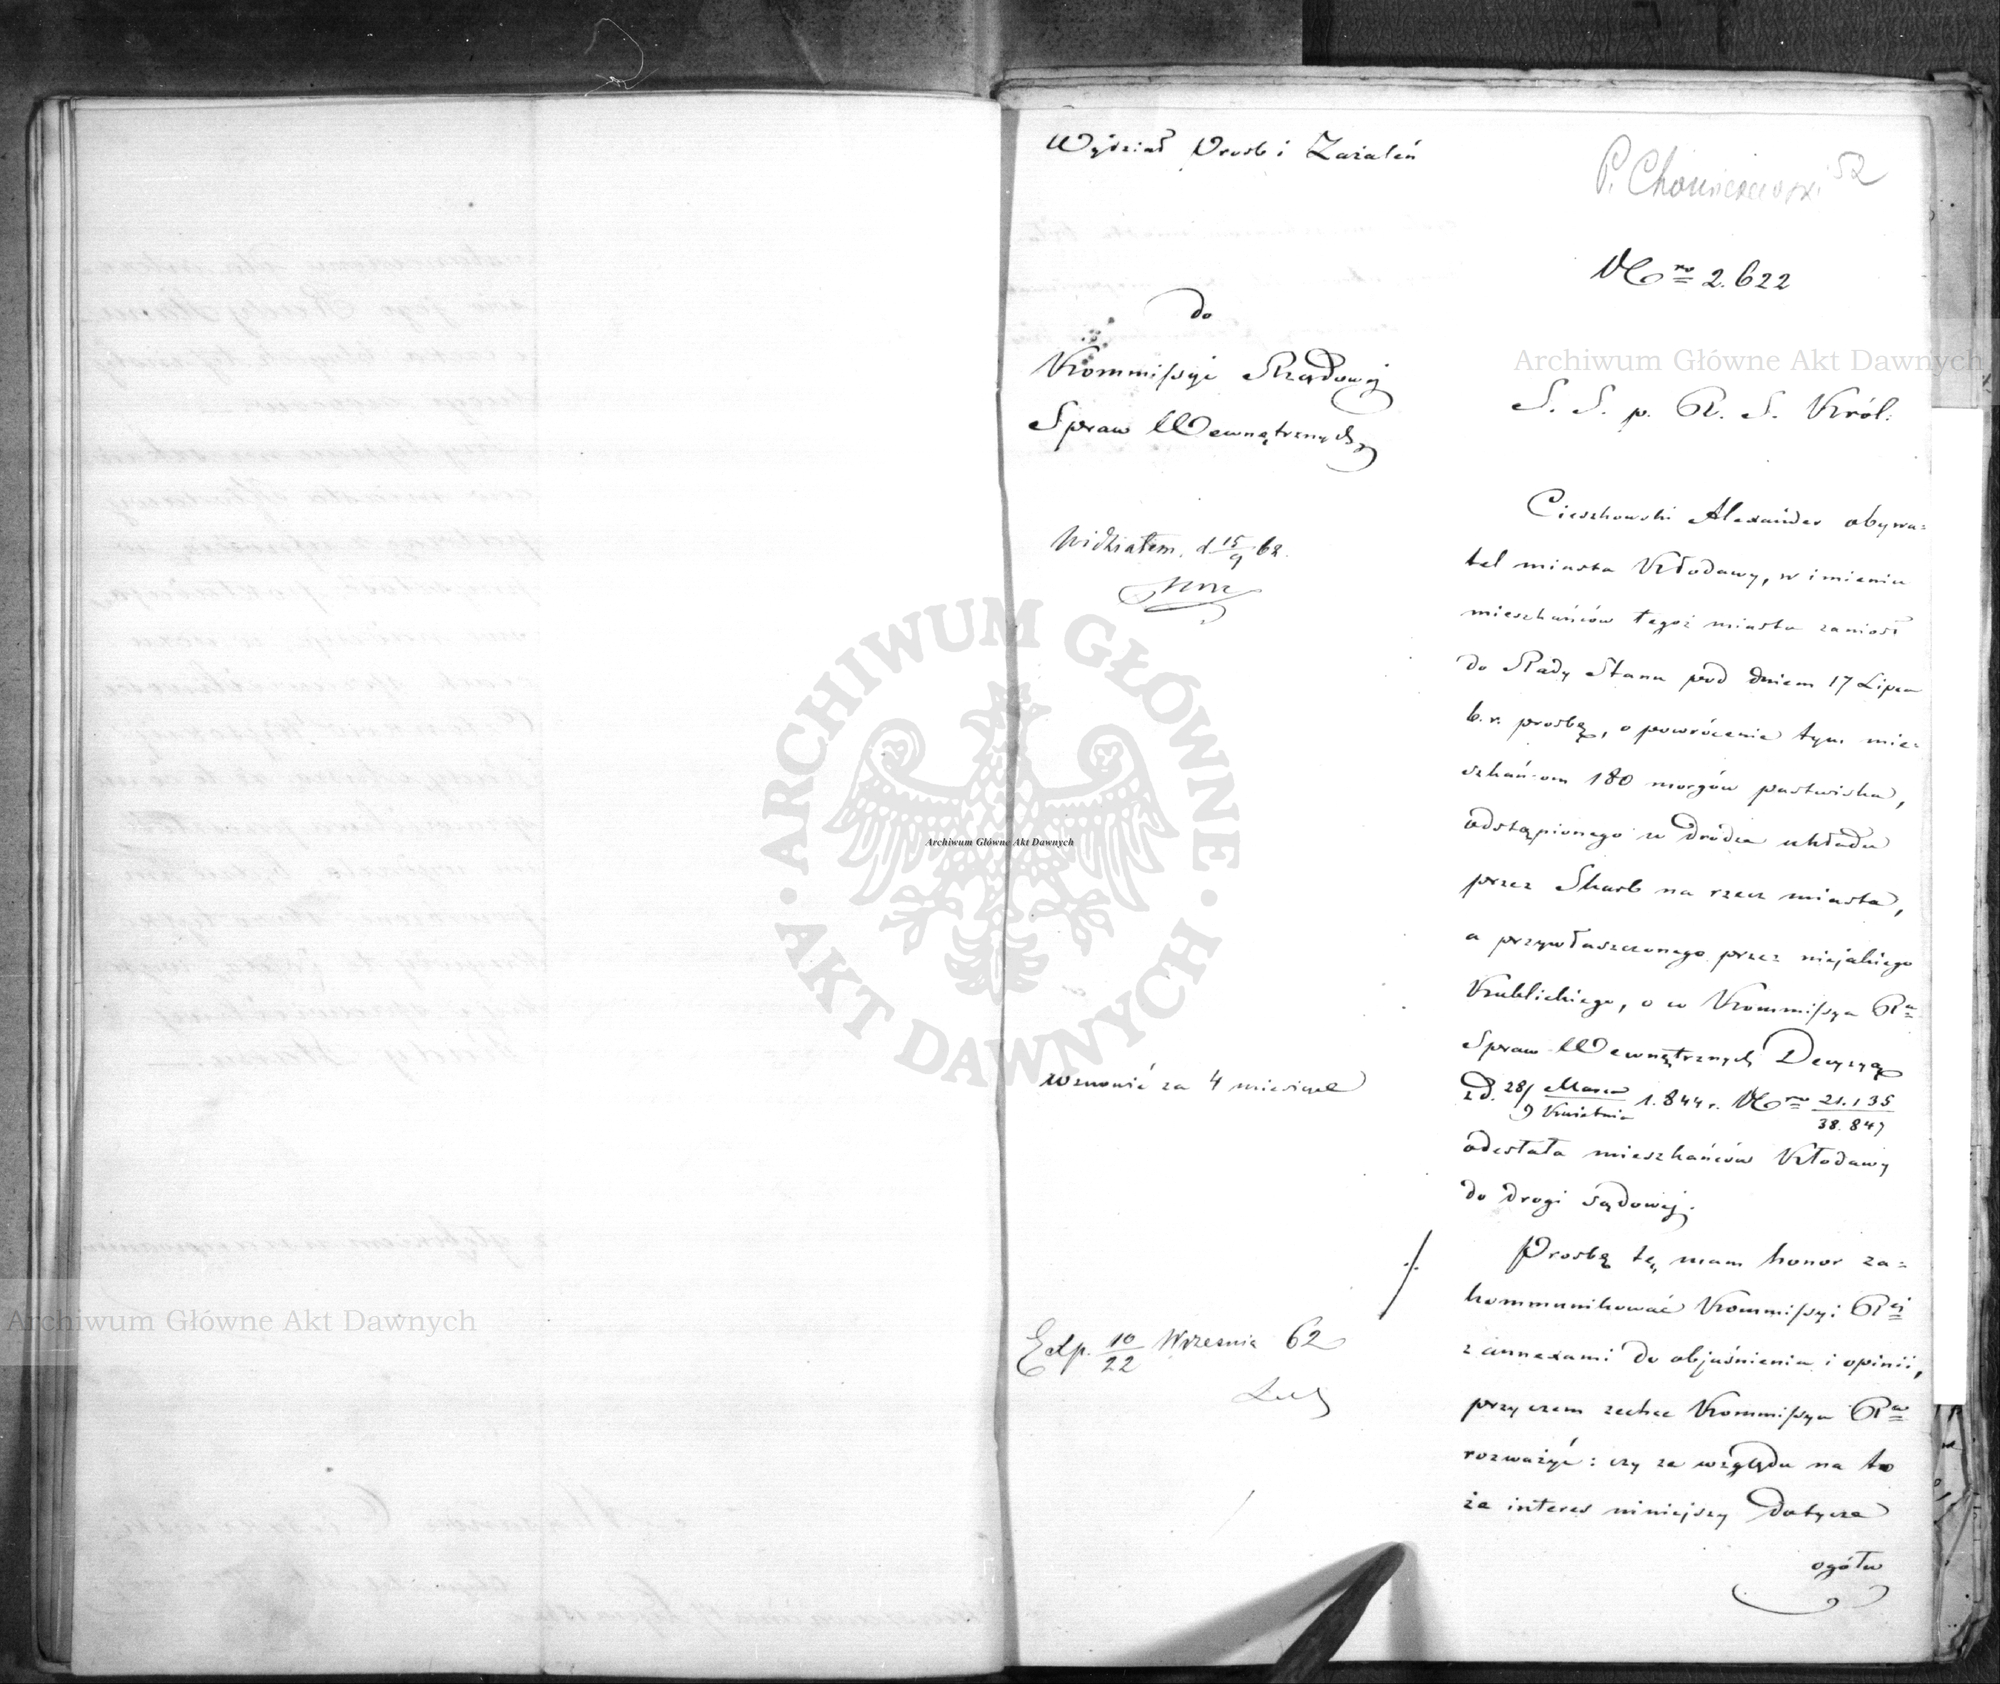 Wydział Prośb i Zażaleń
52
Nro 2.622
do
Kommissyi Rządowéj
Spraw Wewnętrznych
S. S. p. R. S. Król:
Widziałem. d 15/9 62.
Cieszkowski Alexander obywa=
tel miasta Kłodawy, w imieniu
mieszkańców tegoż miasta zaniósł
do Rady Stanu pod dniem 17 Lipca
b.r. prosbę, o powrócenie tym mie=
szkańcom 180 morgów pastwiska,
odstąpionego w drodze układu
przez Skarb na rzecz miasta,
a przywłaszczonego przez niejakiego
Kublickiego, o co Kommissya Ra
Spraw Wewnętrznych Decyzyą
z d. 28/9 Marca/Kwietnia 1.844 r. Nro 21.135/38.847
odesłała mieszkańców Kłodawy
do drogi sądowéj.
wznowić za 4 miesiące
Prosbę tę mam honor za=
kommunikować Kommissyi Réj
z annexami do objaśnienia i opinii,
przyczem zechce Kommissya Ra
rozważyć: czy ze względu na to
że interes niniejszy dotycze
ogółu
Exp. 10/22 Września 62
Archiwum Główne Akt Dawnych
Archiwum Główne Akt Dawnych
Archiwum Główne Akt Dawnych
ARCHIWUM GŁÓWNE • AKT DAWNYCH •